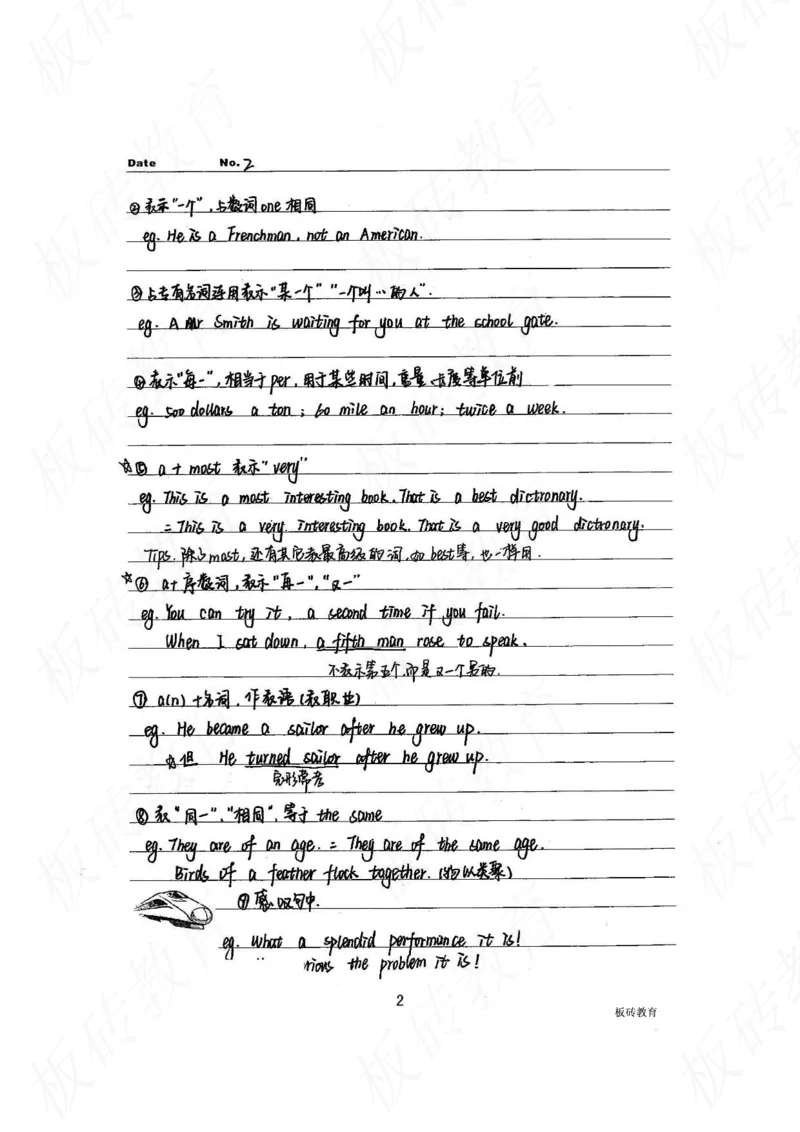 Date No. 2
②表示"一个",与数词one相同
eg. He is a Frenchman, not an American.
③与专有名词连用表示"某一个" "一个叫…的人".
eg. A Mr Smith is waiting for you at the school gate.
④表示"每一",相当于per,用于某些时间,重量,长度等单位前
eg. 500 dollars a ton; 60 mile an hour; twice a week.
☆⑤ a + most 表示"very"
eg. This is a most interesting book. That is a best dictronary.
= This is a very interesting book. That is a very good dictronary.
Tips. 除了most,还有其它表最高级的词,如best等,也一样用.
☆⑥ a+序数词,表示"再一","又一"
eg. You can try it, a second time if you fail.
When I sat down, a fifth man rose to speak.
不表示第五个,而是又一个另的.
⑦ a(n) +名词,作表语(表职业)
eg. He became a sailor after he grew up.
☆但 He turned sailor after he grew up.
完形常考
⑧ 表"同一","相同",等于 the same
eg. They are of an age. = They are of the same age.
Birds of a feather flock together. (物以类聚)
⑨感叹句中.
eg. What a splendid performance it is!
rious the problem it is!
2
板砖教育